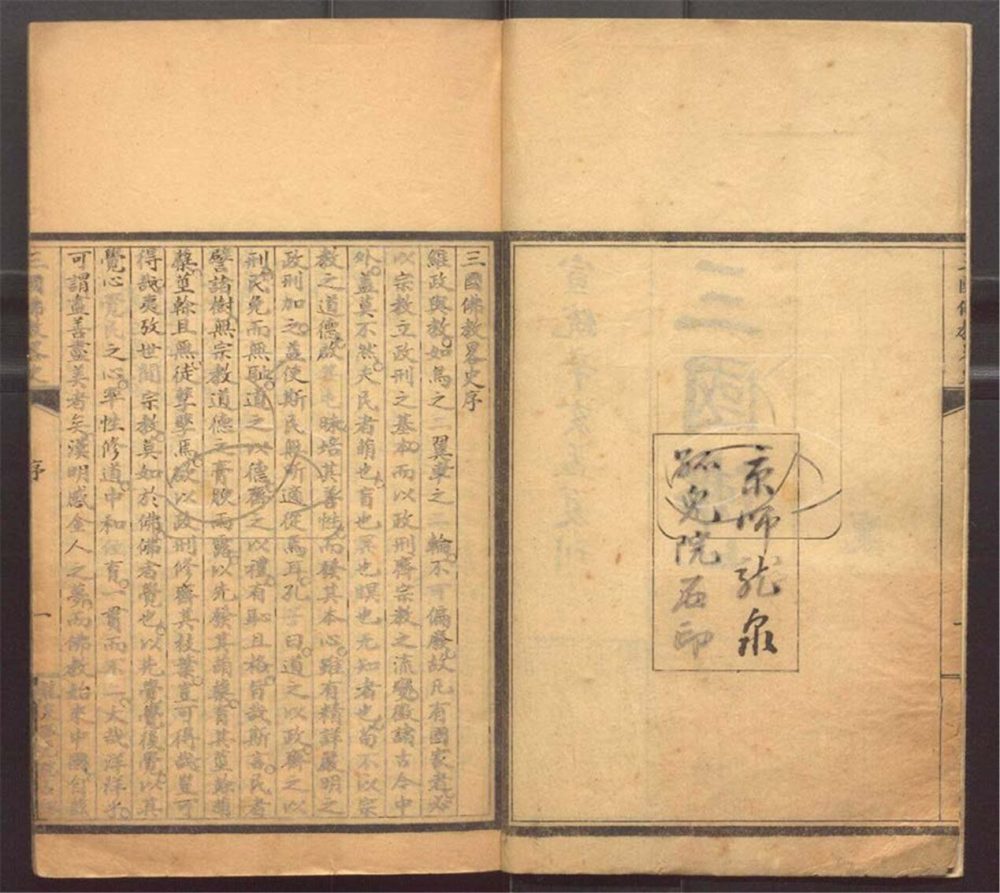 京師龍泉
孤兒院石印
三國佛教畧史序
維政與教如鳥之二翼車之二輪不可偏廢故凡有國家者必
以宗教立政刑之基本而以政刑齊宗教之流變徵諸古今中
外蓋莫不然夫民者萌也盲也冥也瞑也无知者也苟不以宗
教之道德啟其培其善性而發其本心雖有精詳嚴明之
政刑加之益使斯民無所適從焉耳孔子曰道之以政齊之以
刑民免而無恥道之以德齊之以禮有恥且格旨哉斯言民者
譬諸樹無宗教道德之膏腴雨露以先發其萌蘗育其莖
莖幹且無徒孳孳焉欲以政刑修齊其枝葉豈可得哉豈可
得哉夷攷世間宗教莫如於佛佛者覺也以先覺覺後覺以其
覺心覺民之心率性修道中和位育一貫而不二大哉洋洋乎
可謂盡善盡美者矣漢明感金人之夢而佛教始來中國自茲
三國佛教畧史
序
一